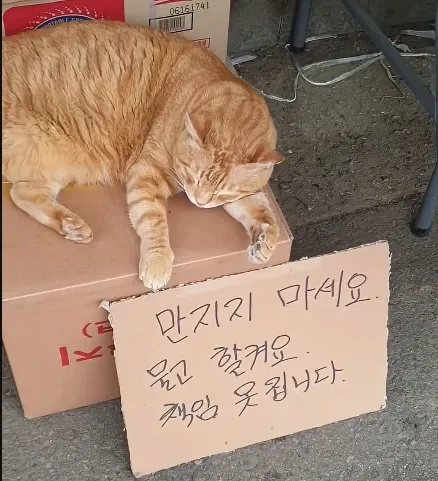 06151741
만지지 마세요.
물고 할켜요.
책임 못집니다.